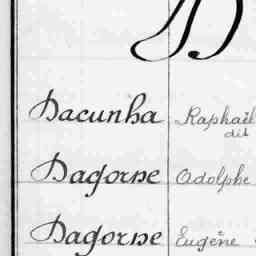 D
Dacunha Raphaël
dit
Dagorne Adolphe
Dagorne Eugène